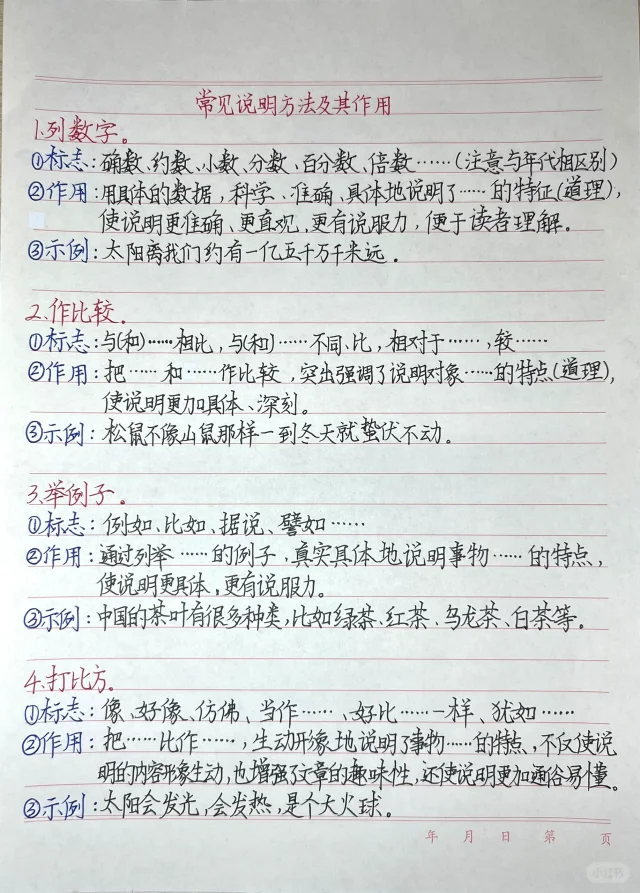 常见说明方法及其作用
1.列数字。
①标志：确数、约数、小数、分数、百分数、倍数……(注意与年代相区别)
②作用：用具体的数据，科学、准确、具体地说明了……的特征(道理)，
使说明更准确、更直观、更有说服力，便于读者理解。
③示例：太阳离我们约有一亿五千万千米远。
2.作比较。
①标志：与(和)……相比，与(和)……不同、比，相对于……，较……
②作用：把……和……作比较，突出强调了说明对象……的特点(道理)，
使说明更加具体、深刻。
③示例：松鼠不像山鼠那样一到冬天就蛰伏不动。
3.举例子。
①标志：例如、比如、据说、譬如……
②作用：通过列举……的例子，真实具体地说明事物……的特点，
使说明更具体，更有说服力。
③示例：中国的茶叶有很多种类，比如绿茶、红茶、乌龙茶、白茶等。
4.打比方。
①标志：像、好像、仿佛、当作……、好比……一样、犹如……
②作用：把……比作……，生动形象地说明了事物……的特点，不仅使说
明的内容形象生动，也增强了文章的趣味性，还使说明更加通俗易懂。
③示例：太阳会发光，会发热，是个大火球。
年 月 日 第 页
小红书